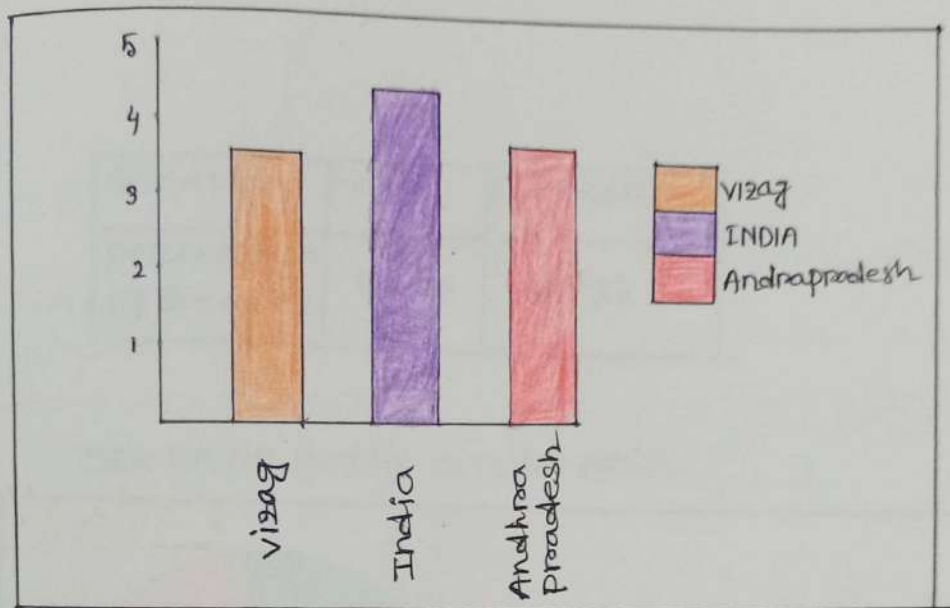 5
4
3
2
1
vizag
INDIA
Andrapradesh
vizag
India
Andhra
pradesh